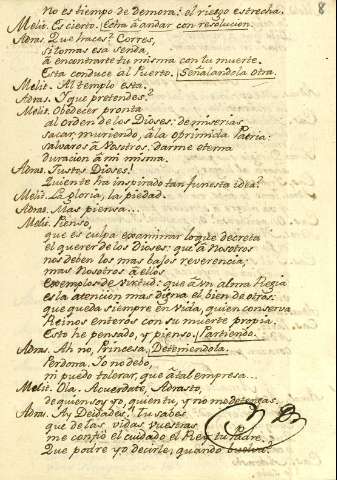 8
No es tiempo de demora: el riesgo estrecha.
Melit. Es cierto. Echa à andar con resolucion.
Adras. Que haces? Corres,
si tomas esa senda,
à encontrarte tu misma con tu muerte.
Esta conduce al Puerto. Señalandola otra.
Melit. Al templo esta.
Adras. Y que pretendes?
Melit. Obedecer pronta
al orden de los Dioses: de miserias
sacar, muriendo, à la oprimida Patria:
salvaros à Nosotros: darme eterna
duracion à mi misma.
Adras. Justos Dioses!
Quien te ha inspirado tan funesta idea?
Melit. La gloria, la piedad.
Adras. Mas piensa...
Melit. Pienso,
que es culpa examinar lo que decreta
el querer de los Dioses: que à Nosotros
nos deben los mas bajos reverencia;
mas Nosotros à ellos
exemplos de virtud: que à un alma Regia
es la atencion mas digna el bien de otras:
que queda siempre en vida, quien conserva
Reinos enteros con su muerte propia.
Esto he pensado, y pienso. Partiendo.
Adras. Ah no, Princesa. Deteniendola.
Perdona. Yo no debo,
ni puedo tolerar, que à tal empresa...
Melit. Ola. Acuerdate, Adrasto,
de quien soy yo, quien tu, y no me detengas.
Adras. Ay Deidades! Tu sabes
que de las vidas vuestras
me confió el cuidado el Rey tu Padre.
Que podre yo decirle, quando buelva?